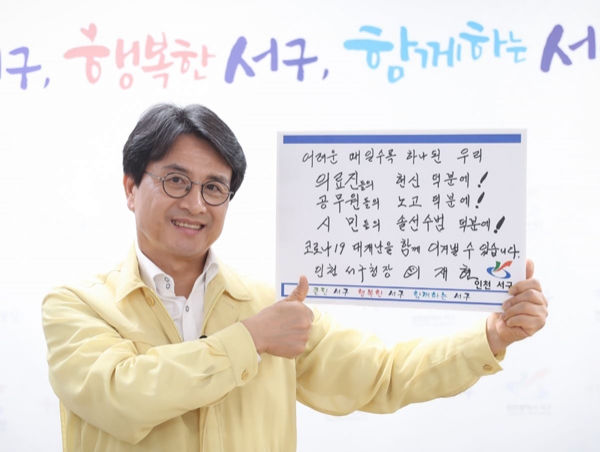 구, 행복한 서구, 함께하는 서
어려운 때일수록 하나된 우리
의료진들의 헌신 덕분에!
공무원들의 노고 덕분에!
시민들의 솔선수범 덕분에!
코로나19 대재난을 함께 이겨낼 수 있습니다.
인천 서구청장 이재현
인천 서구
서구 행복한 서구 함께하는 서구